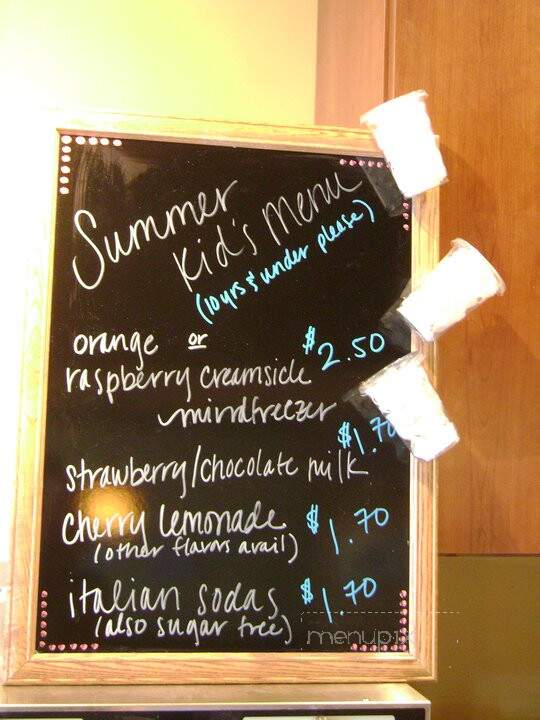 Summer
Kid's Menu
(10yrs & under please)
orange or
raspberry creamsicle $2.50
mindfreezer
strawberry/chocolate milk $1.70
cherry lemonade $1.70
(other flavors avail)
italian sodas $1.70
(also sugar free)